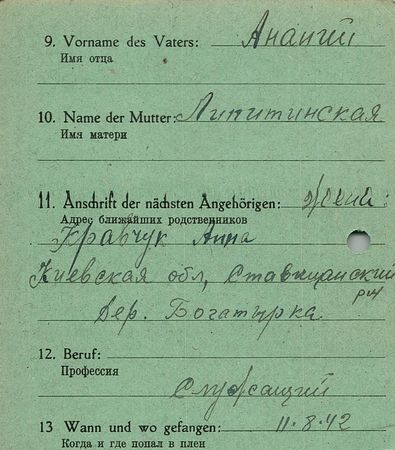 9. Vorname des Vaters: Ананий
Имя отца
10. Name der Mutter: Липитинская
Имя матери
11. Anschrift der nächsten Angehörigen: жена:
Адрес ближайших родственников
Кравчук Анна
Киевская обл, Ставищанский
р-н
Дер. Богатырка.
12. Beruf:
Профессия
Служащий
13 Wann und wo gefangen: 11.8.42
Когда и где попал в плен